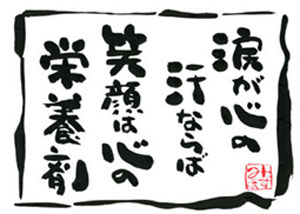 涙が心の
汗ならば
笑顔は心の
栄養剤